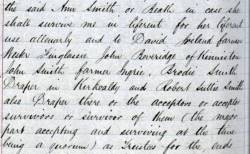 the said Ann Smith or Beath in case she
shall survive me in liferent for her liferent
use allenarly and to David Ireland farmer
Wester Finglassie John Beveridge of Kenneston
John Smith farmer Ingrie, Brodie Smith
Draper in Kirkcaldy and Robert Suttie Smith
also Draper there or the acceptors or acceptor
survivors or survivor of them (the major
part accepting and surviving at the time
being a quorum) as Trustees for the ends